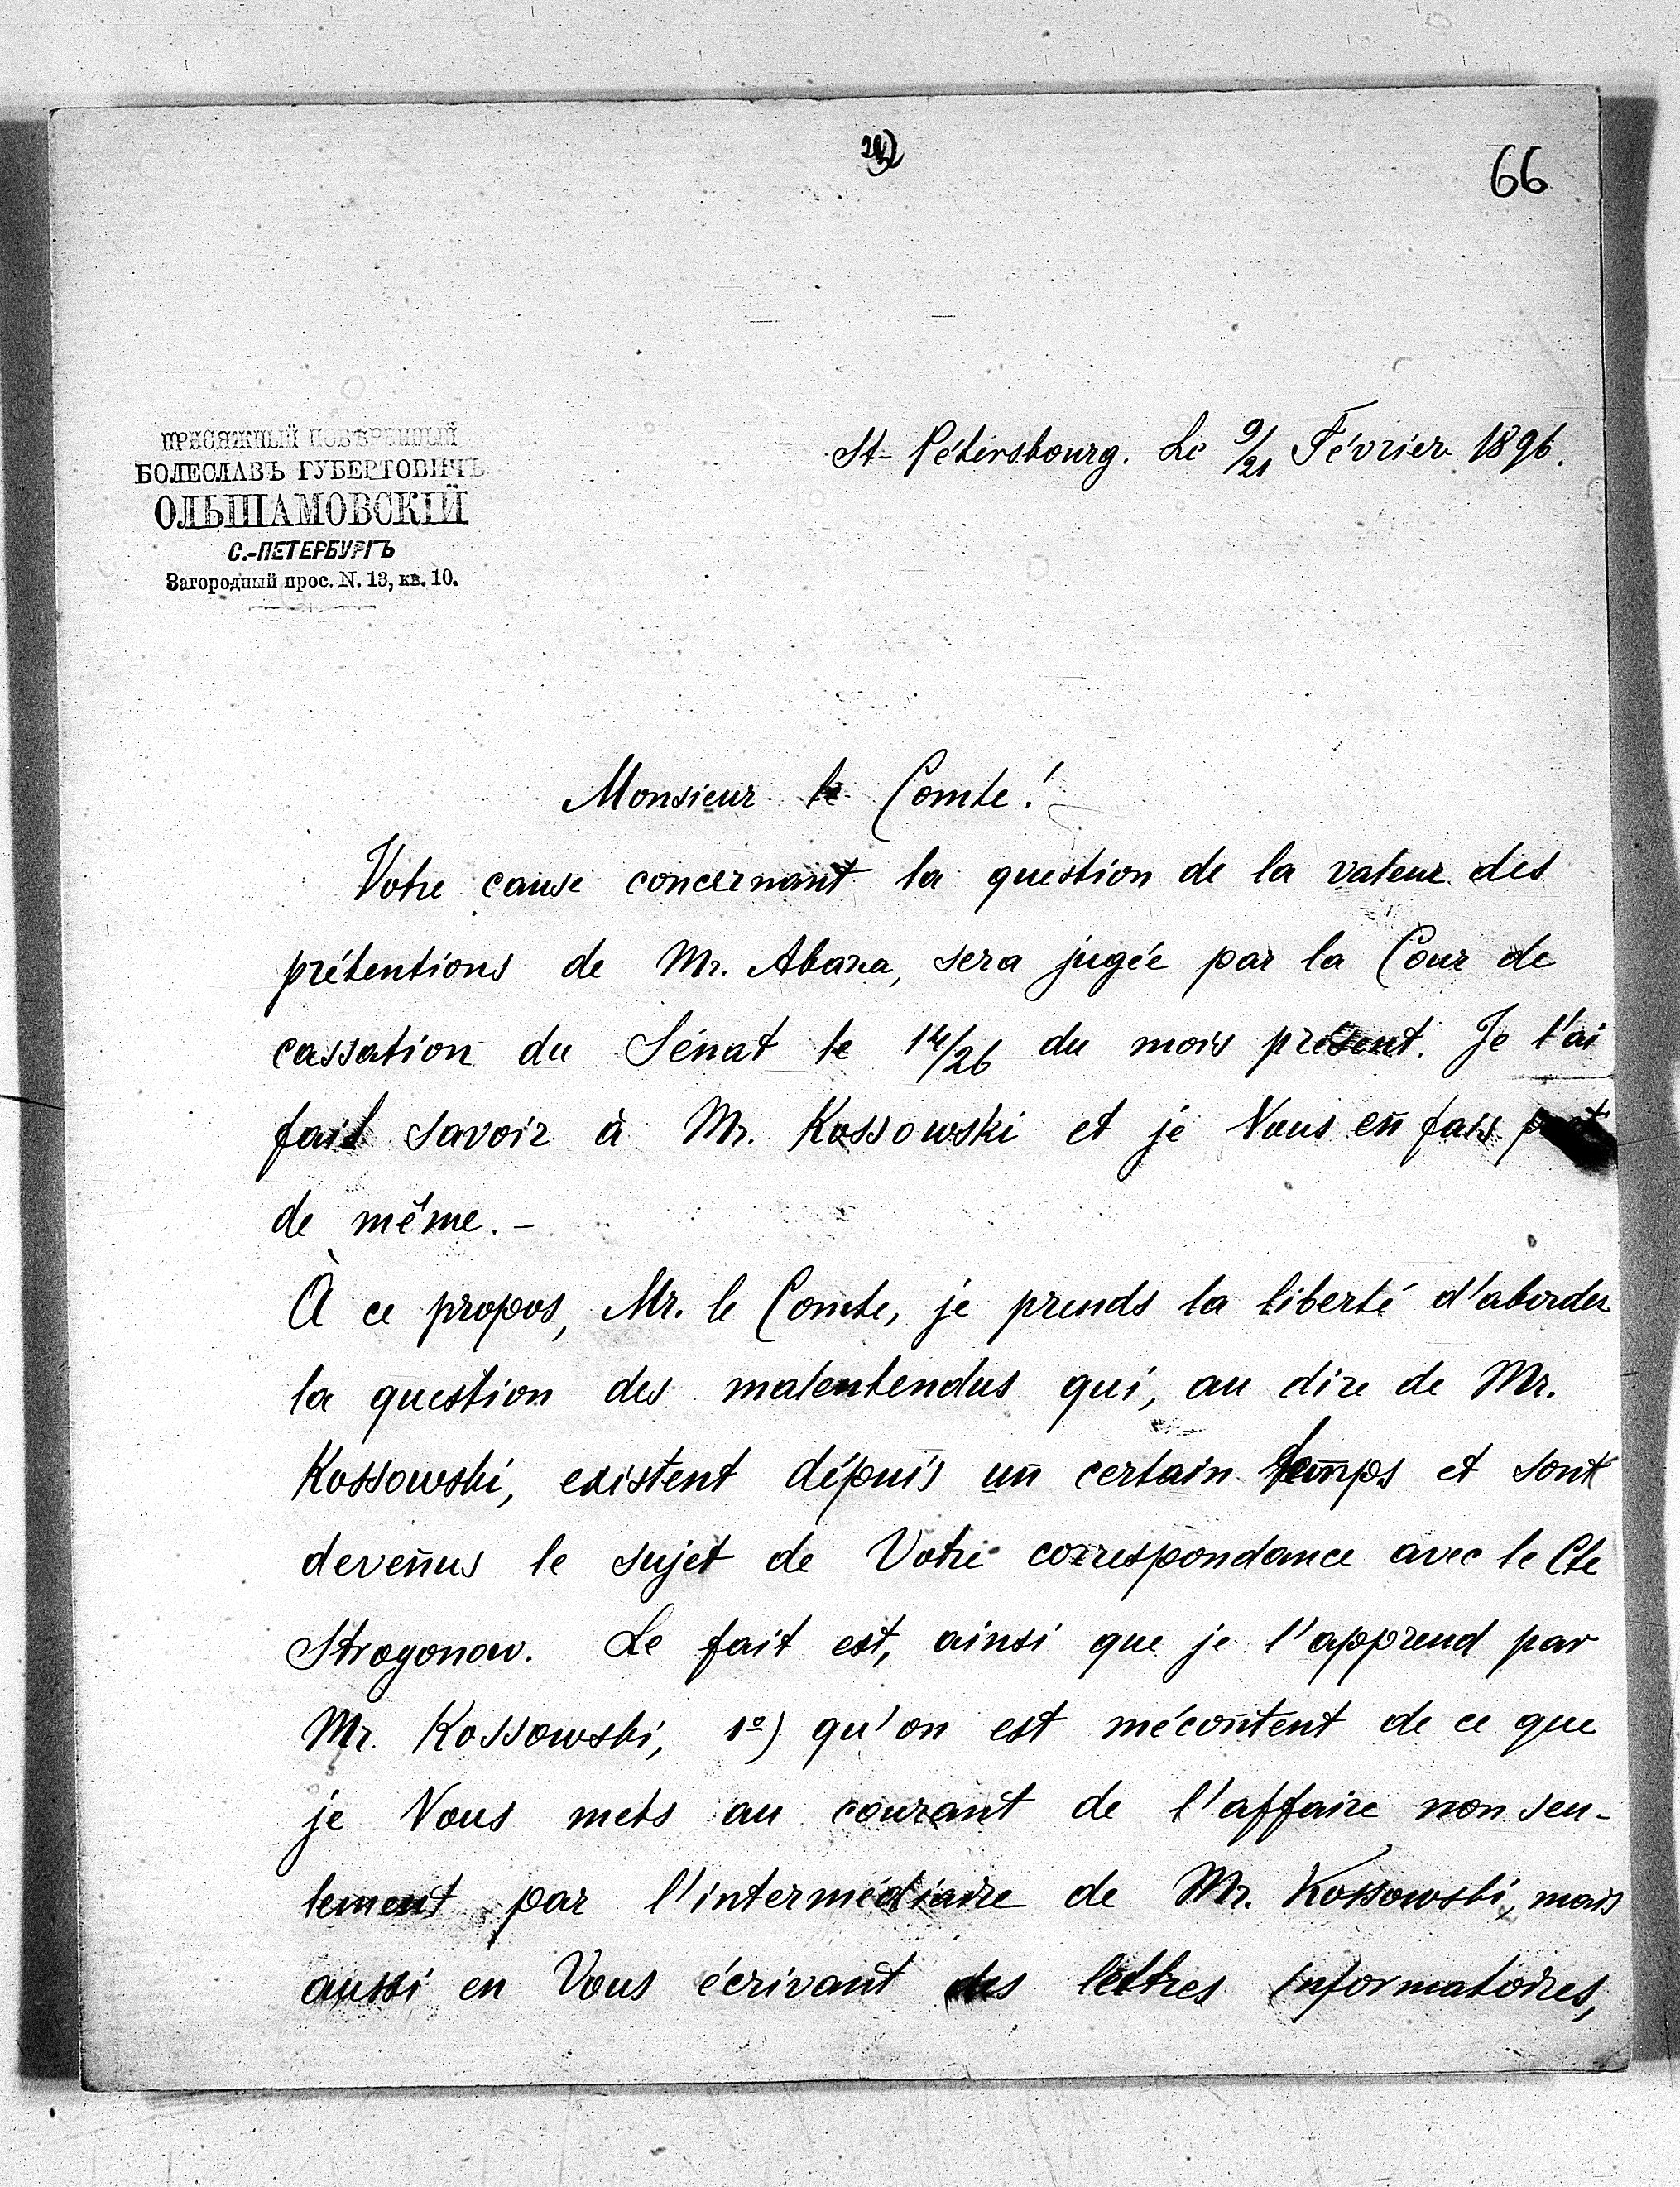 66
ПРИСЯЖНЫЙ ПОВѢРЕННЫЙ
БОЛЕСЛАВЪ ГУБЕРТОВИЧЪ
ОЛЬШАМОВСКІЙ
С.-ПЕТЕРБУРГЪ
Загородный прос. N. 13, кв. 10.
St-Pétersbourg. Le 9/21 Février 1896.
Monsieur le Comte!
Votre cause concernant la question de la valeur des
prétentions de Mr. Abaza, sera jugée par la Cour de
cassation du Sénat le 14/26 du mois présent. Je l'ai
fait savoir à Mr. Kossowski et je Vous en fais part
de même. –
À ce propos, Mr. le Comte, je prends la liberté d'aborder
la question des malentendus qui, au dire de Mr.
Kossowski, existent dépuis un certain temps et sont
devenus le sujet de Votre correspondance avec le Cte
Strogonow. Le fait est, ainsi que je l'apprend par
Mr. Kossowski, 1º) qu'on est mécontent de ce que
je Vous mets au courant de l'affaire non seu-
lement par l'intermédiaire de Mr. Kossowski, mais
aussi en Vous écrivant des lettres informatoires,